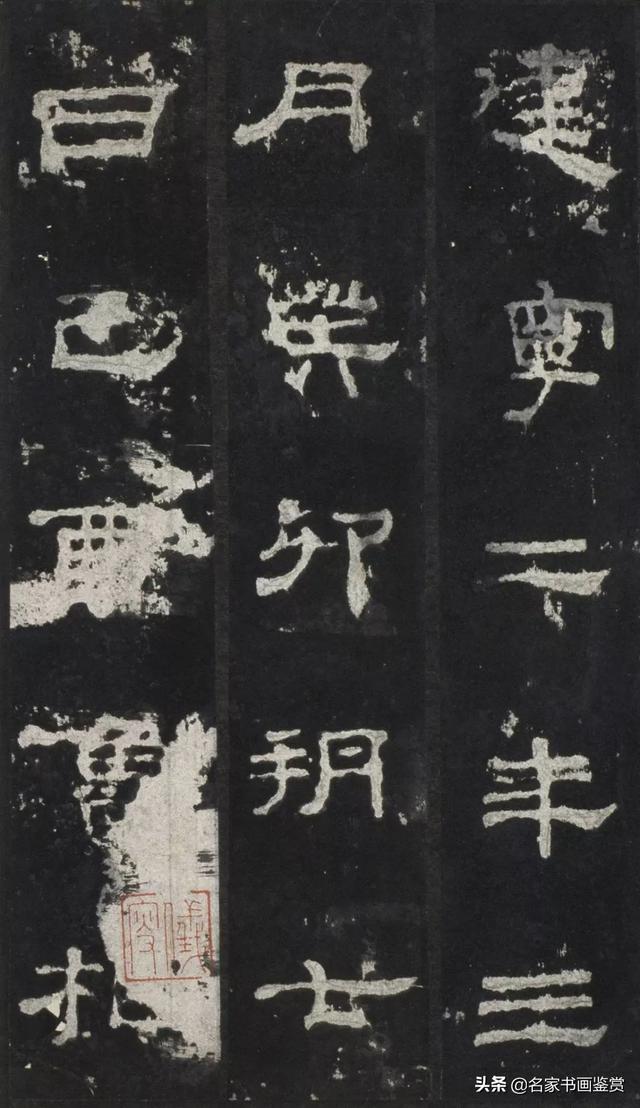 建寧二年三
月癸卯朔七
日己酉魯相
头条 @名家书画鉴赏